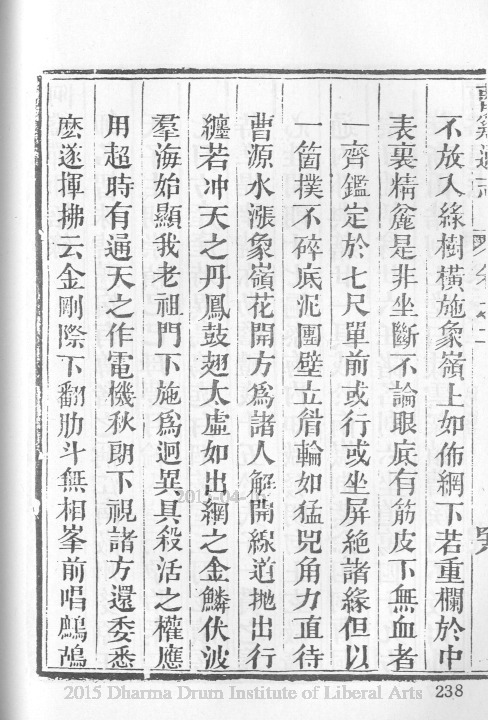 不放入綠樹橫施象嶺上如佈網下若重欄於中
表裏精麄是非坐斷不論眼底有筋皮下無血者
一齊鑑定於七尺單前或行或坐屏絕諸緣但以
一箇撲不碎底泥團壁立眉輪如猛兕角力直待
曹源水漲象嶺花開方爲諸人解開線道拋出行
纏若冲天之丹鳳鼓翅太虛如出網之金鱗伏波
羣海始顯我老祖門下施爲迥異具殺活之權應
用超時有通天之作電機秋朗下視諸方還委悉
麽遂揮拂云金剛際下翻肋斗無相峯前唱鷓鴣
2015 Dharma Drum Institute of Liberal Arts
238